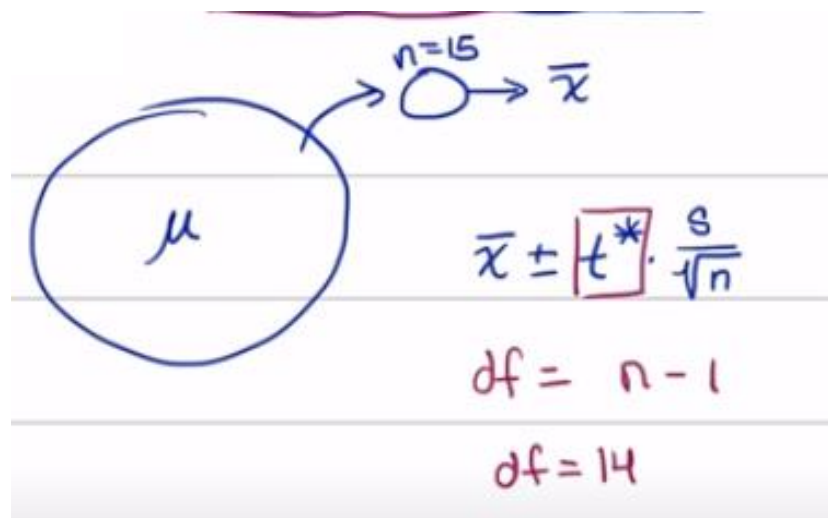 n=15
x̄
μ
x̄ ± t* · s/√n
df = n - 1
df = 14